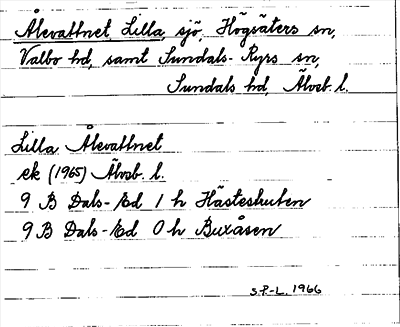 Ålevattnet, Lilla, sjö, Högsäters sn,
Valbo hd, samt Sundals-Ryrs sn,
Sundals hd, Älvsb. l.
Lilla Ålevattnet
ek (1965) Älvsb. l.
9 B Dals-Ed 1 h Hästeskuten
9 B Dals-Ed 0 h Buxåsen
S.P-L. 1966